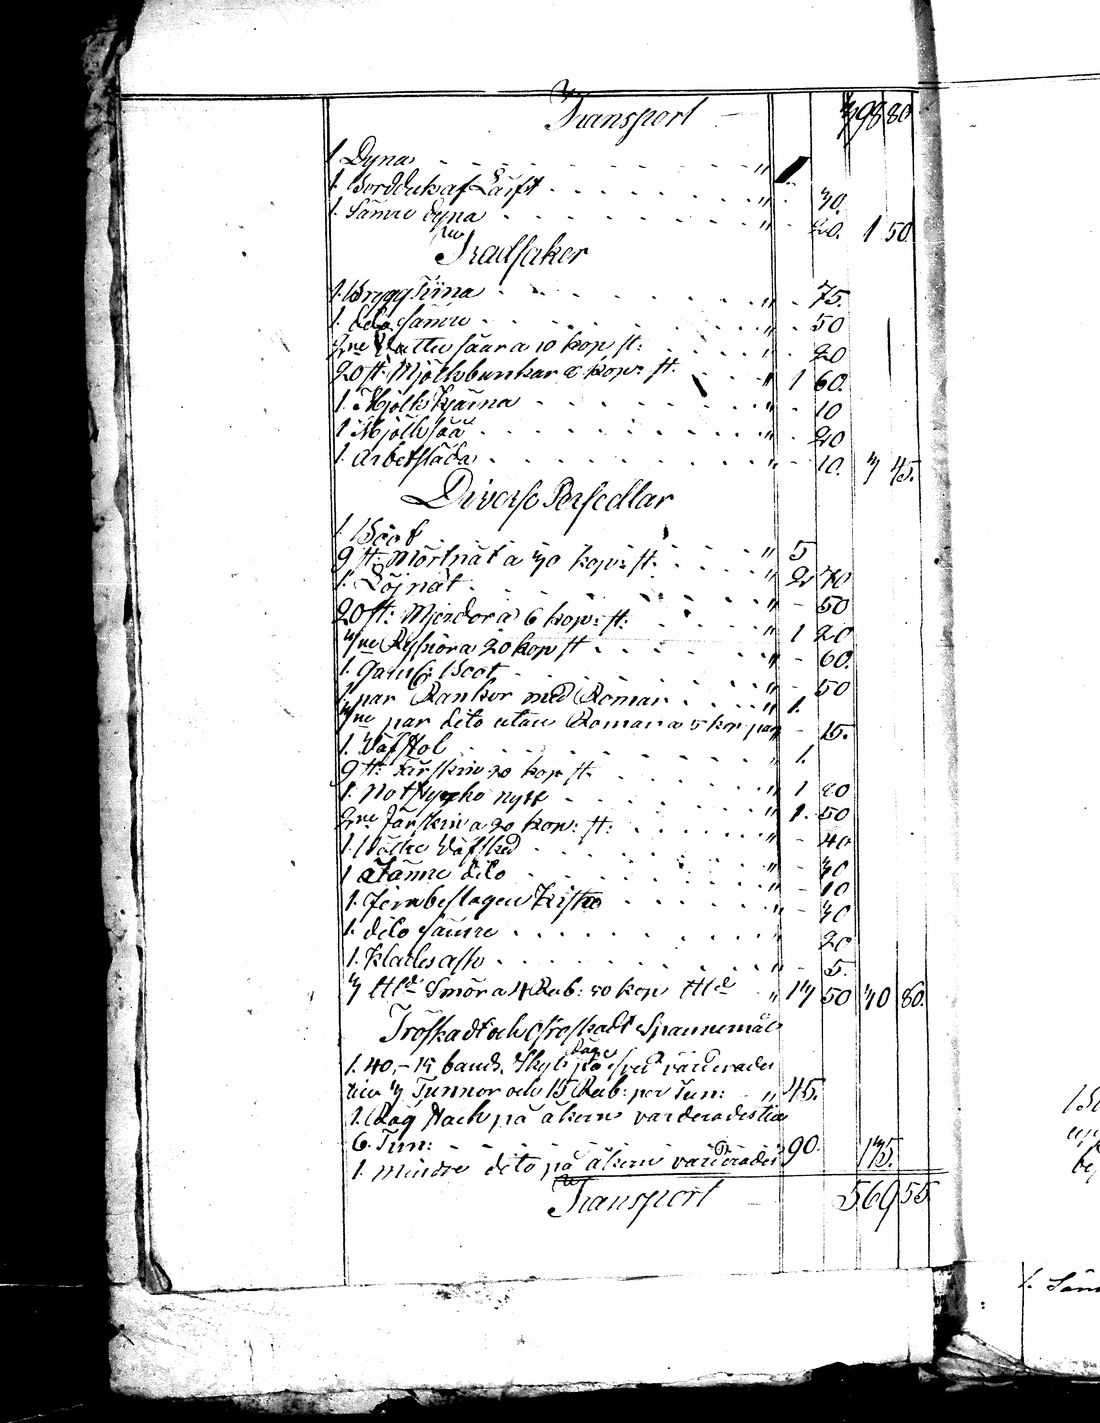 Transport — 398 80
1 Dyna " 1
1. Bordduk af Lärft " - 30.
1. Sämre dyna " - 20. 1 50.
Trädsaker
1. BryggTiina " - 75.
1. dito sämre " - 50
2ne Vattu såar a 10 kop st: " - 20
20 st. Mjölkbunkar 8 kop: st. " 1 60.
1. Mjölk Kjärna " - 10
1 Mjölk såå " - 20
1. Arbetsläda " - 10. 3 45.
Diverse Persedlar
1 Boot " 5
9 st: Mörtnät a 30 kop: st. " 2 70
1. Löjnät " - 50
20 st: Mjerdor a 6 kop: st: " 1 20
3ne Rysior a 20 kop st " - 60.
1. gaml: Boot " - 50
1. par Rankor med Romar " 1.
3ne par dito utan Romar a 5 kop par - 15.
1. Väfstol " 1.
9 st: Fårskin 20 kop st. " 1 80
1. Notstycke nytt " 1. 50
2ne Fårskin a 20 kop: st: " - 40
1. Väfsked " - 30
1 Sämre dito " - 10
1. Jernbeslagen Kista " - 30
1. dito sämre " 20
1. Kladesask " - 5.
3 Lld Smör a 4 Rub: 50 kop Lld " 13 50 30 80.
Tröskadt och Otröskadt Spannemål
1. 40,- 15 band. Skyl: Råg på sved värderades
till 3 Tunnor och 15 Rub: per Tun: " 45.
1. Råg Stack på åkern värderades till
6. Tun: 90.
1. mindre dito på åkern värderades 135.
Transport 569 55
1. Säm